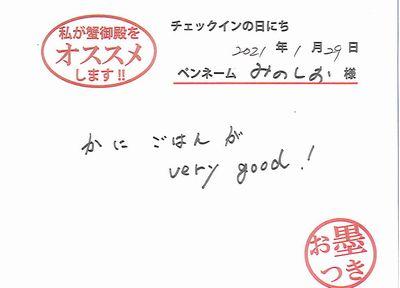 私が蟹御殿を
オススメ
します!!
チェックインの日にち
2021年1月29日
ペンネーム みのしお 様
かに ごはんが
very good!
お墨
つき